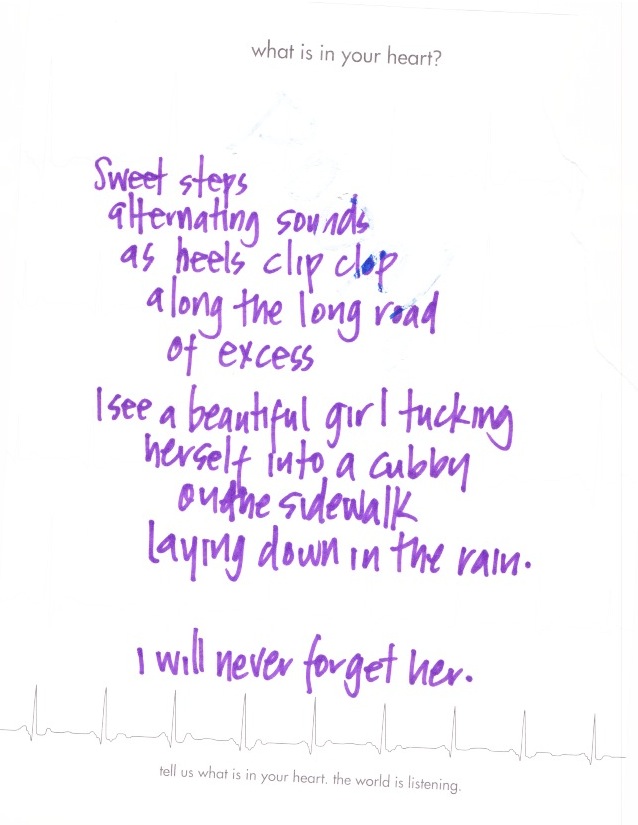 what is in your heart?
Sweet steps
alternating sounds
as heels clip clop
along the long road
of excess
I see a beautiful girl tucking
herself into a cubby
on the sidewalk
laying down in the rain.
I will never forget her.
tell us what is in your heart. the world is listening.